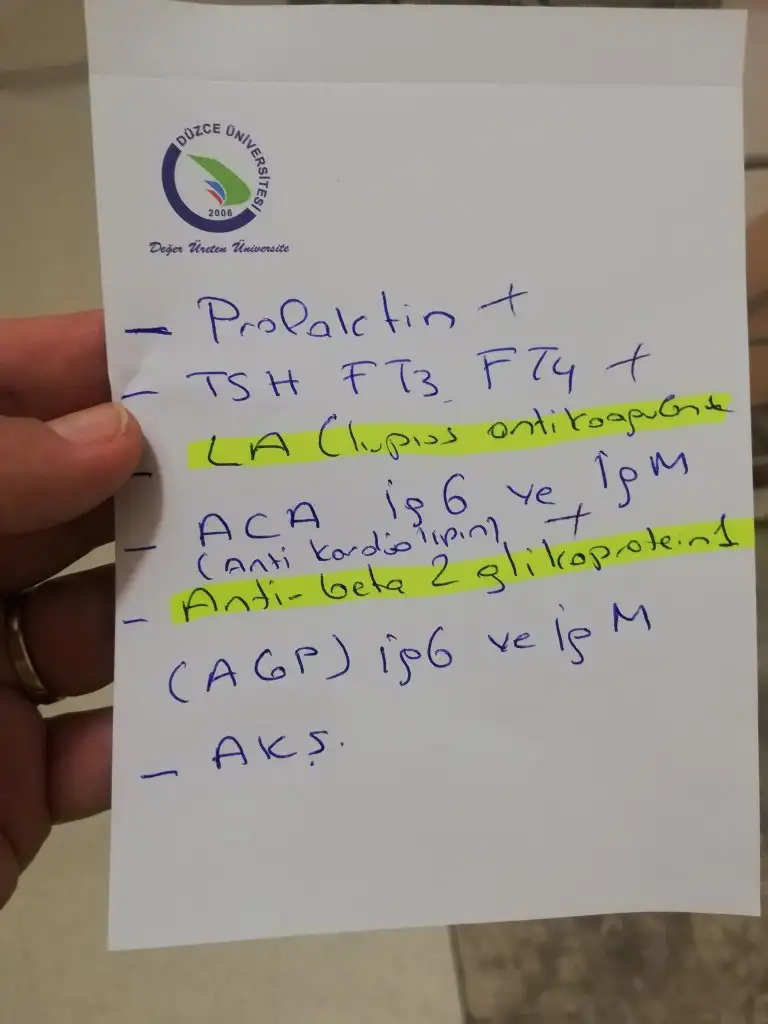 DÜZCE ÜNİVERSİTESİ
2006
Değer Üreten Üniversite
- Prolaktin +
- TSH FT3 FT4 +
- LA (lupus antikoagulanı
- ACA İgG ve İgM
(Anti kardiolipin) +
- Anti-beta 2 glikoprotein1
(AGP) İgG ve İgM
- AKŞ.